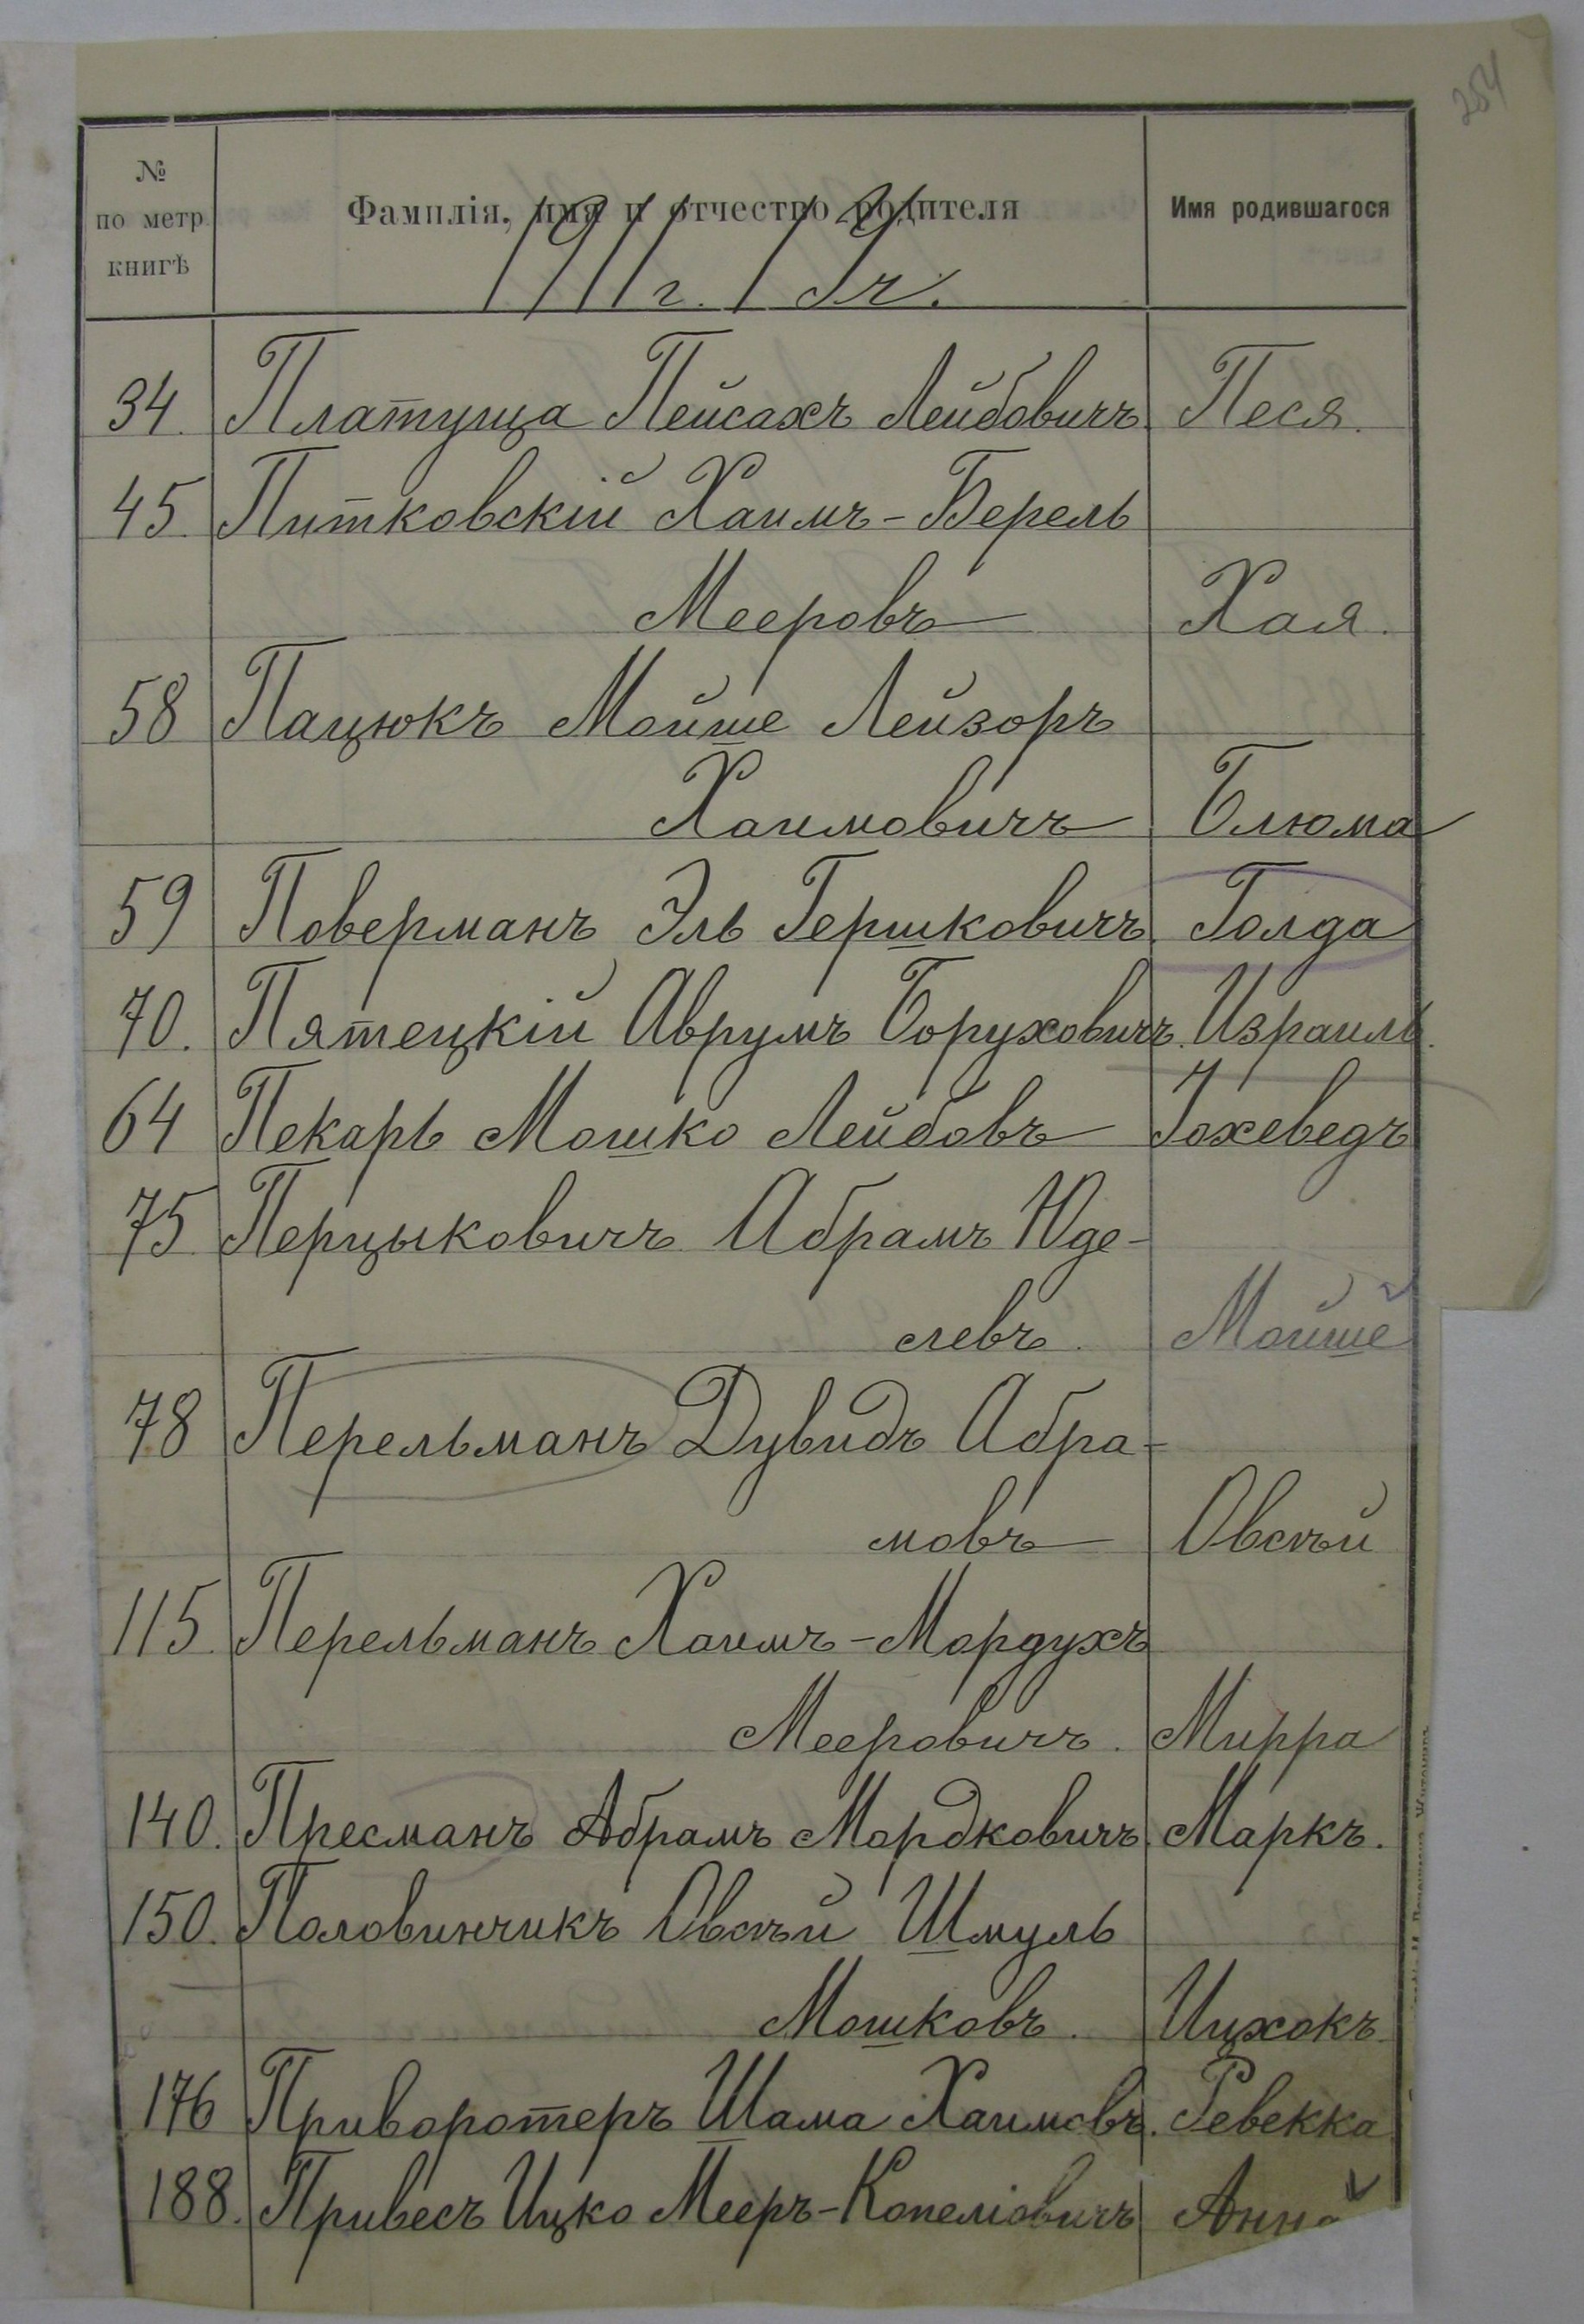 254
№ по метр. книгѣ
Фамилія, имя и отчество родителя
Имя родившагося
1911 г. / У ч.
34. Платуща Пейсахъ Лейбовичъ. Песя.
45. Питковскій Хаимъ-Берель
Мееровъ Хая.
58 Пацюкъ Мойше Лейзоръ
Хаимовичъ Блюма
59 Поверманъ Эль Гершковичъ. Голда
70. Пятецкій Аврумъ Боруховичъ. Израиль.
64 Пекарь Мошко Лейбовъ Іохеведъ
75 Перцыковичъ Абрамъ Юде-
левъ. Мойше
78 Перельманъ Дувидъ Абра-
мовъ Овсѣй
115. Перельманъ Хаимъ-Мордухъ
Мееровичъ. Мирра
140. Пресманъ Абрамъ Мордковичъ. Маркъ.
150. Половинчикъ Овсѣй Шмуль
Мошковъ. Ицхокъ.
176 Приворотеръ Шама Хаимовъ. Ревекка
188. Привесъ Ицко Мееръ-Копеліовичъ Анна